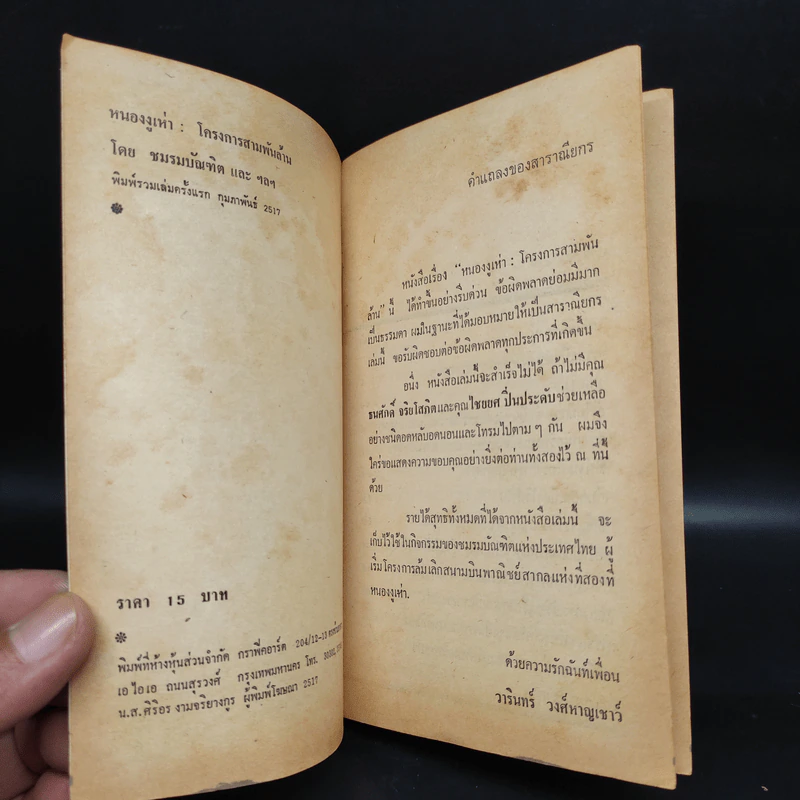 หนองงูเห่า : โครงการสามพันล้าน
โดย ชมรมบัณฑิต และ ฯลฯ
พิมพ์รวมเล่มครั้งแรก กุมภาพันธ์ 2517
ราคา 15 บาท
พิมพ์ที่ห้างหุ้นส่วนจำกัด กราฟี่คอาร์ต 204/12-13
เอ ไอ เอ ถนนสุรวงศ์ กรุงเทพมหานคร โทร.
น.ส. ศิริอร งามจริยางกูร ผู้พิมพ์โฆษณา 2517
คำแถลงของสาราณียกร
หนังสือเรื่อง "หนองงูเห่า : โครงการสามพัน
ล้าน" นี้ ได้ทำขึ้นอย่างรีบด่วน ข้อผิดพลาดย่อมมีมาก
เป็นธรรมดา ผมในฐานะที่ได้มอบหมายให้เป็นสาราณียกร
เล่มนี้ ขอรับผิดชอบต่อข้อผิดพลาดทุกประการที่เกิดขึ้น
อนึ่ง หนังสือเล่มนี้จะสำเร็จไม่ได้ ถ้าไม่มีคุณ
ธนศักดิ์ จริยโสภิตและคุณไชยยศ ปิ่นประดับช่วยเหลือ
อย่างชนิดอดหลับอดนอนและโทรมไปตาม ๆ กัน ผมจึง
ใคร่ขอแสดงความขอบคุณอย่างยิ่งต่อท่านทั้งสองไว้ ณ ที่นี้
ด้วย
รายได้สุทธิทั้งหมดที่ได้จากหนังสือเล่มนี้ จะ
เก็บไว้ใช้ในกิจกรรมของชมรมบัณฑิตแห่งประเทศไทย ผู้
เริ่มโครงการล้มเลิกสนามบินพาณิชย์สากลแห่งที่สองที่
หนองงูเห่า.
ด้วยความรักฉันท์เพื่อน
วารินทร์ วงศ์หาญเชาว์